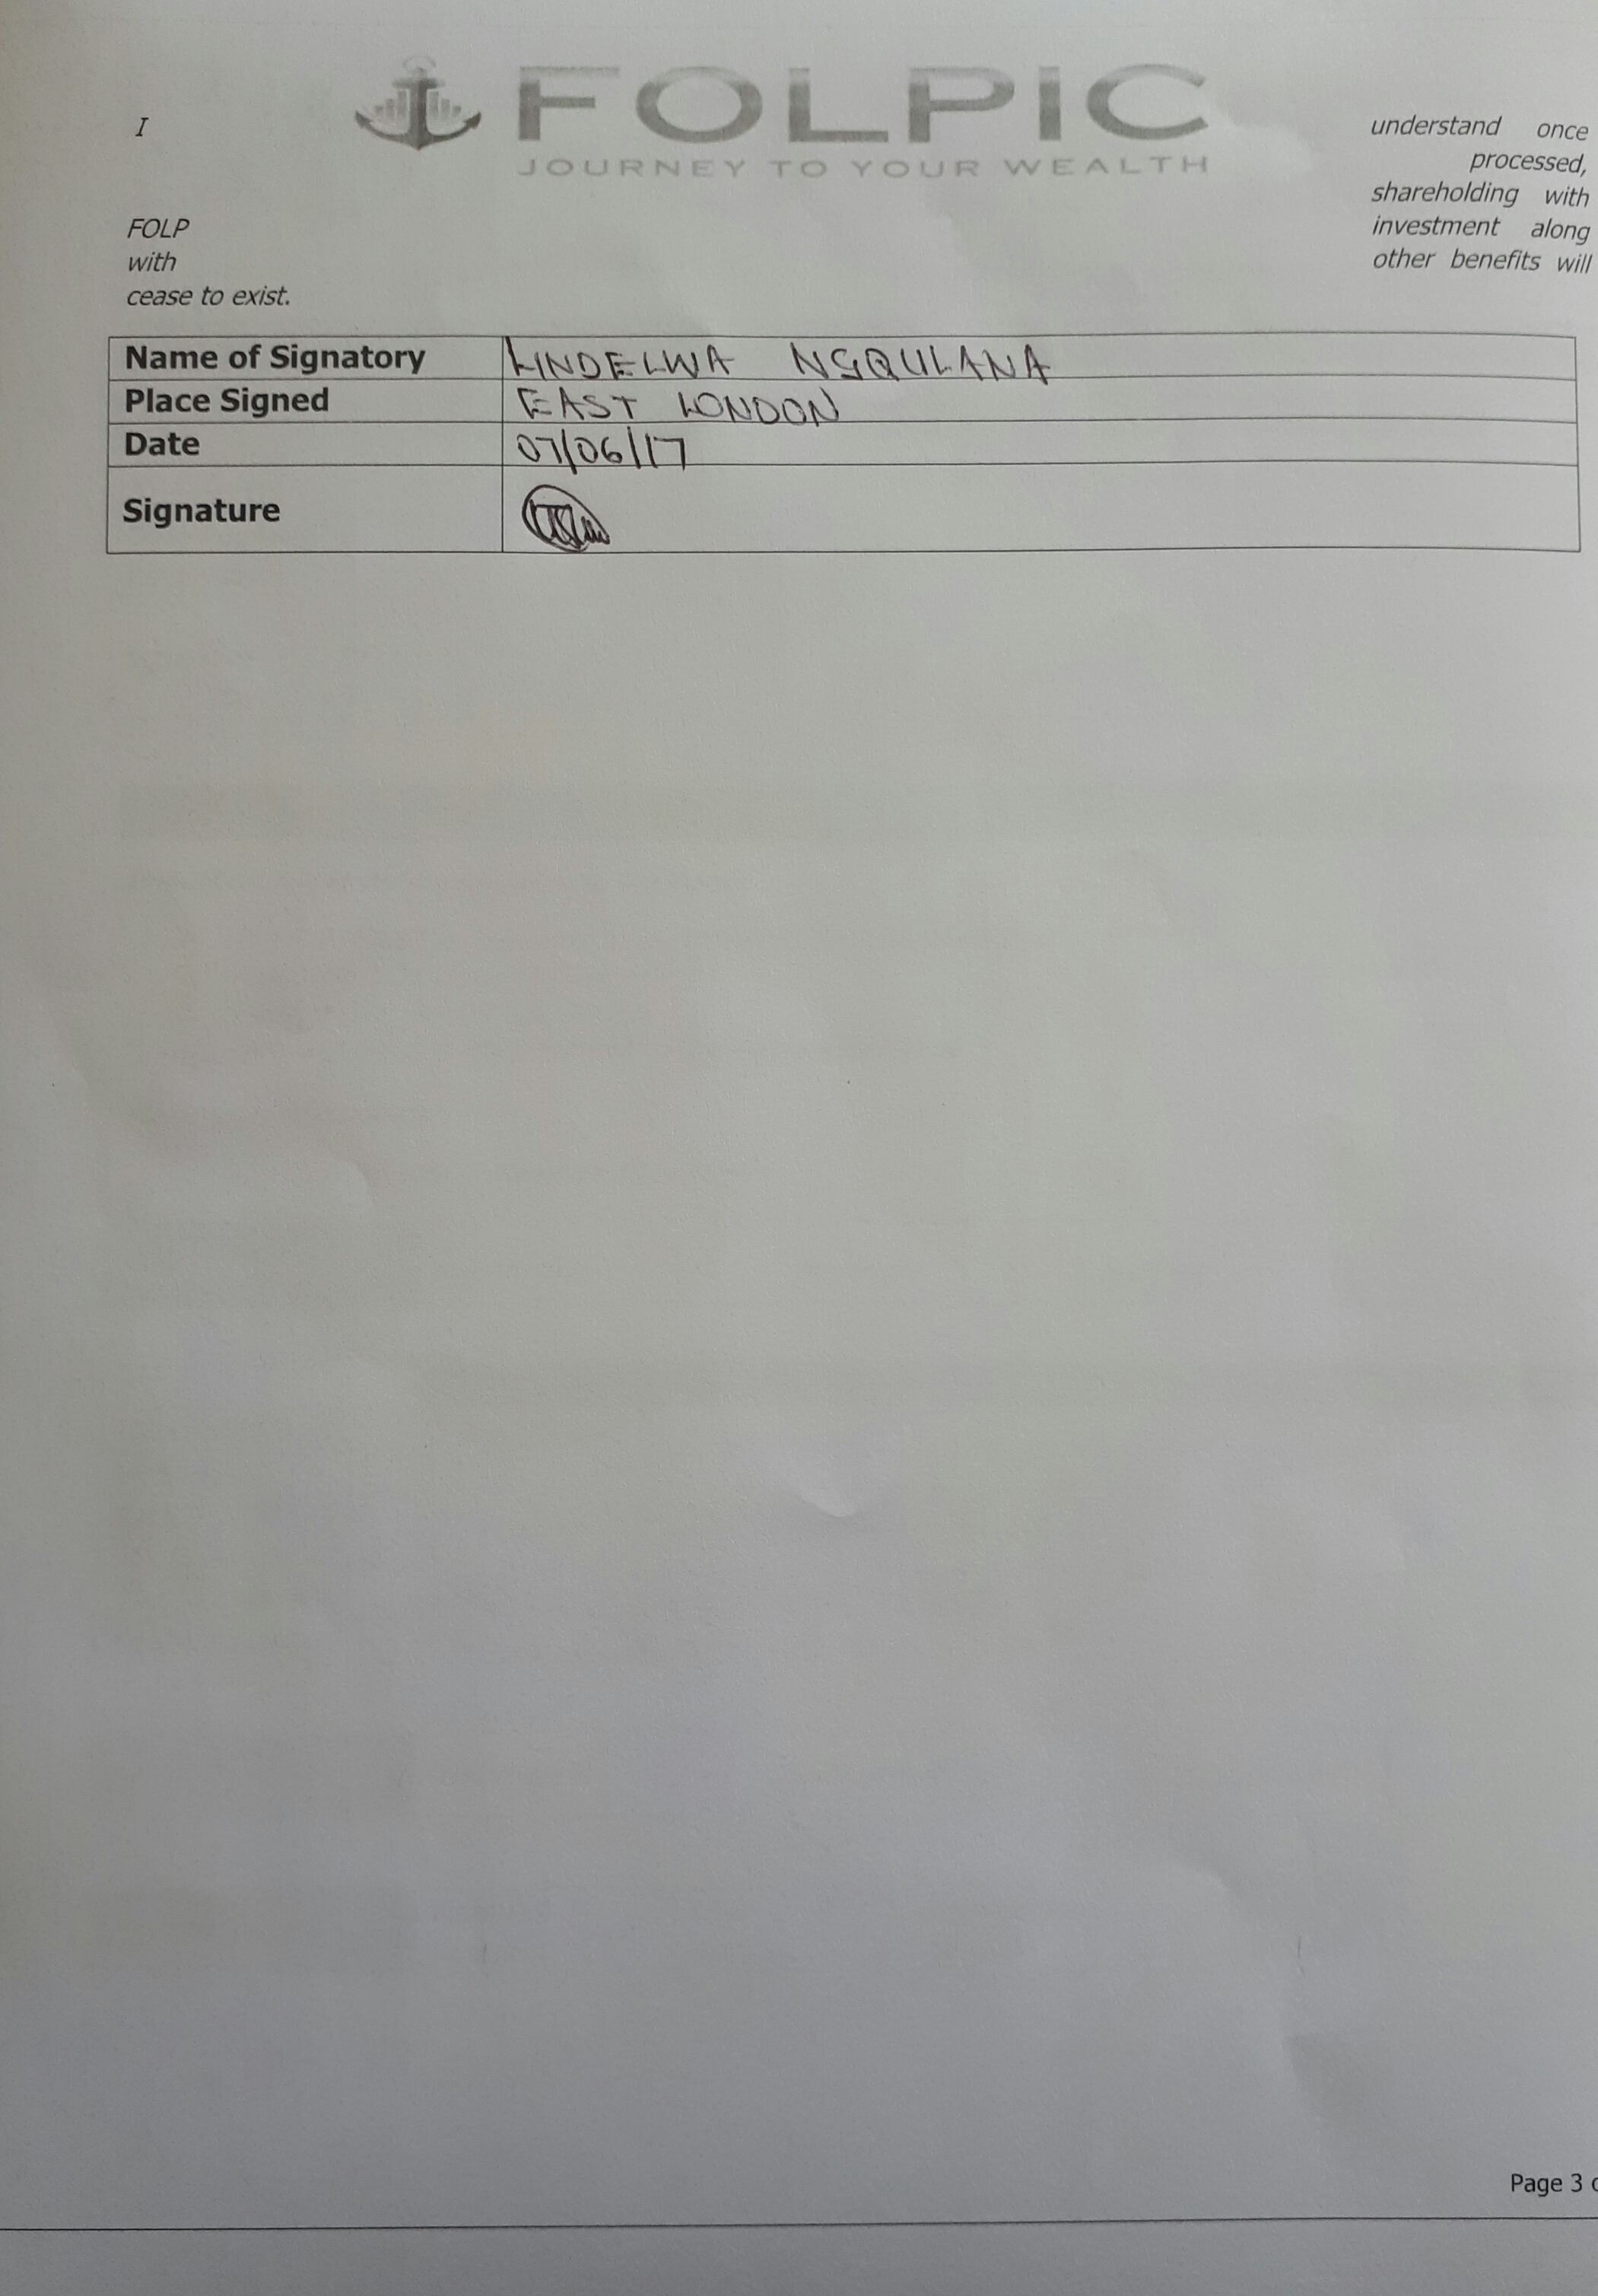 FOLPIC
JOURNEY TO YOUR WEALTH
I understand once
processed,
shareholding with
FOLP investment along
with other benefits will
cease to exist.
Name of Signatory LINDELWA NGQULANA
Place Signed EAST LONDON
Date 07/06/17
Signature
Page 3